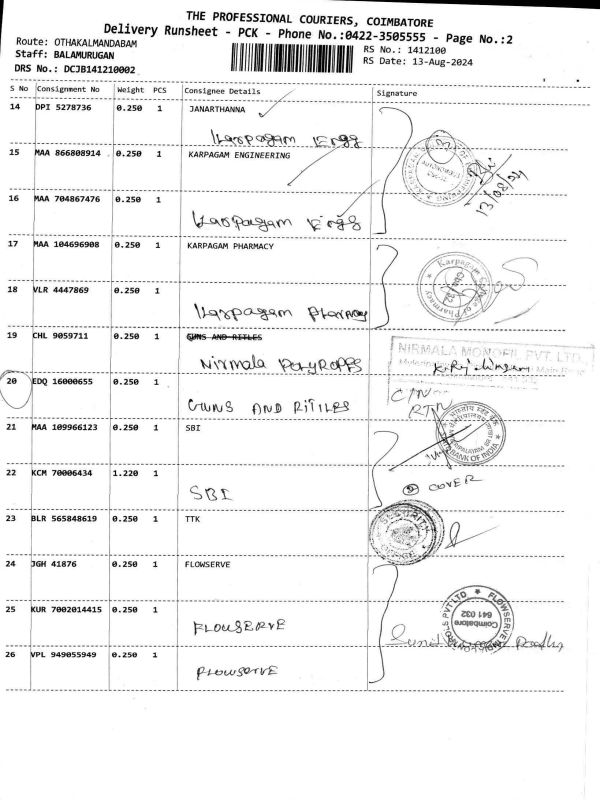 THE PROFESSIONAL COURIERS, COIMBATORE
Delivery Runsheet - PCK - Phone No.:0422-3505555 - Page No.:2
Route: OTHAKALMANDABAM
RS No.: 1412100
Staff: BALAMURUGAN
RS Date: 13-Aug-2024
DRS No.: DCJB141210002
S No Consignment No Weight PCS Consignee Details Signature
14 DPI 5278736 0.250 1 JANARTHANNA
Karpagam Engg
15 MAA 866808914 0.250 1 KARPAGAM ENGINEERING
13/08/24
16 MAA 704867476 0.250 1
Karpagam Engg
17 MAA 104696908 0.250 1 KARPAGAM PHARMACY
Karpagam College of Pharmacy
18 VLR 4447869 0.250 1
Karpagam Pharmacy
19 CHL 9059711 0.250 1 GUNS AND RITLES
Nirmala POLYROPES
NIRMALA MONOFIL PVT. LTD.
20 EDQ 16000655 0.250 1
GUNS AND RITILES
C/N
RTN
21 MAA 109966123 0.250 1 SBI
BANK OF INDIA
22 KCM 70006434 1.220 1
SBI
② COVER
23 BLR 565848619 0.250 1 TTK
SECURITY
24 JGH 41876 0.250 1 FLOWSERVE
25 KUR 7002014415 0.250 1
FLOWSERVE
FLOWSERVE
PVT LTD
Coimbatore
641 032
26 VPL 949055949 0.250 1
FLOWSERVE